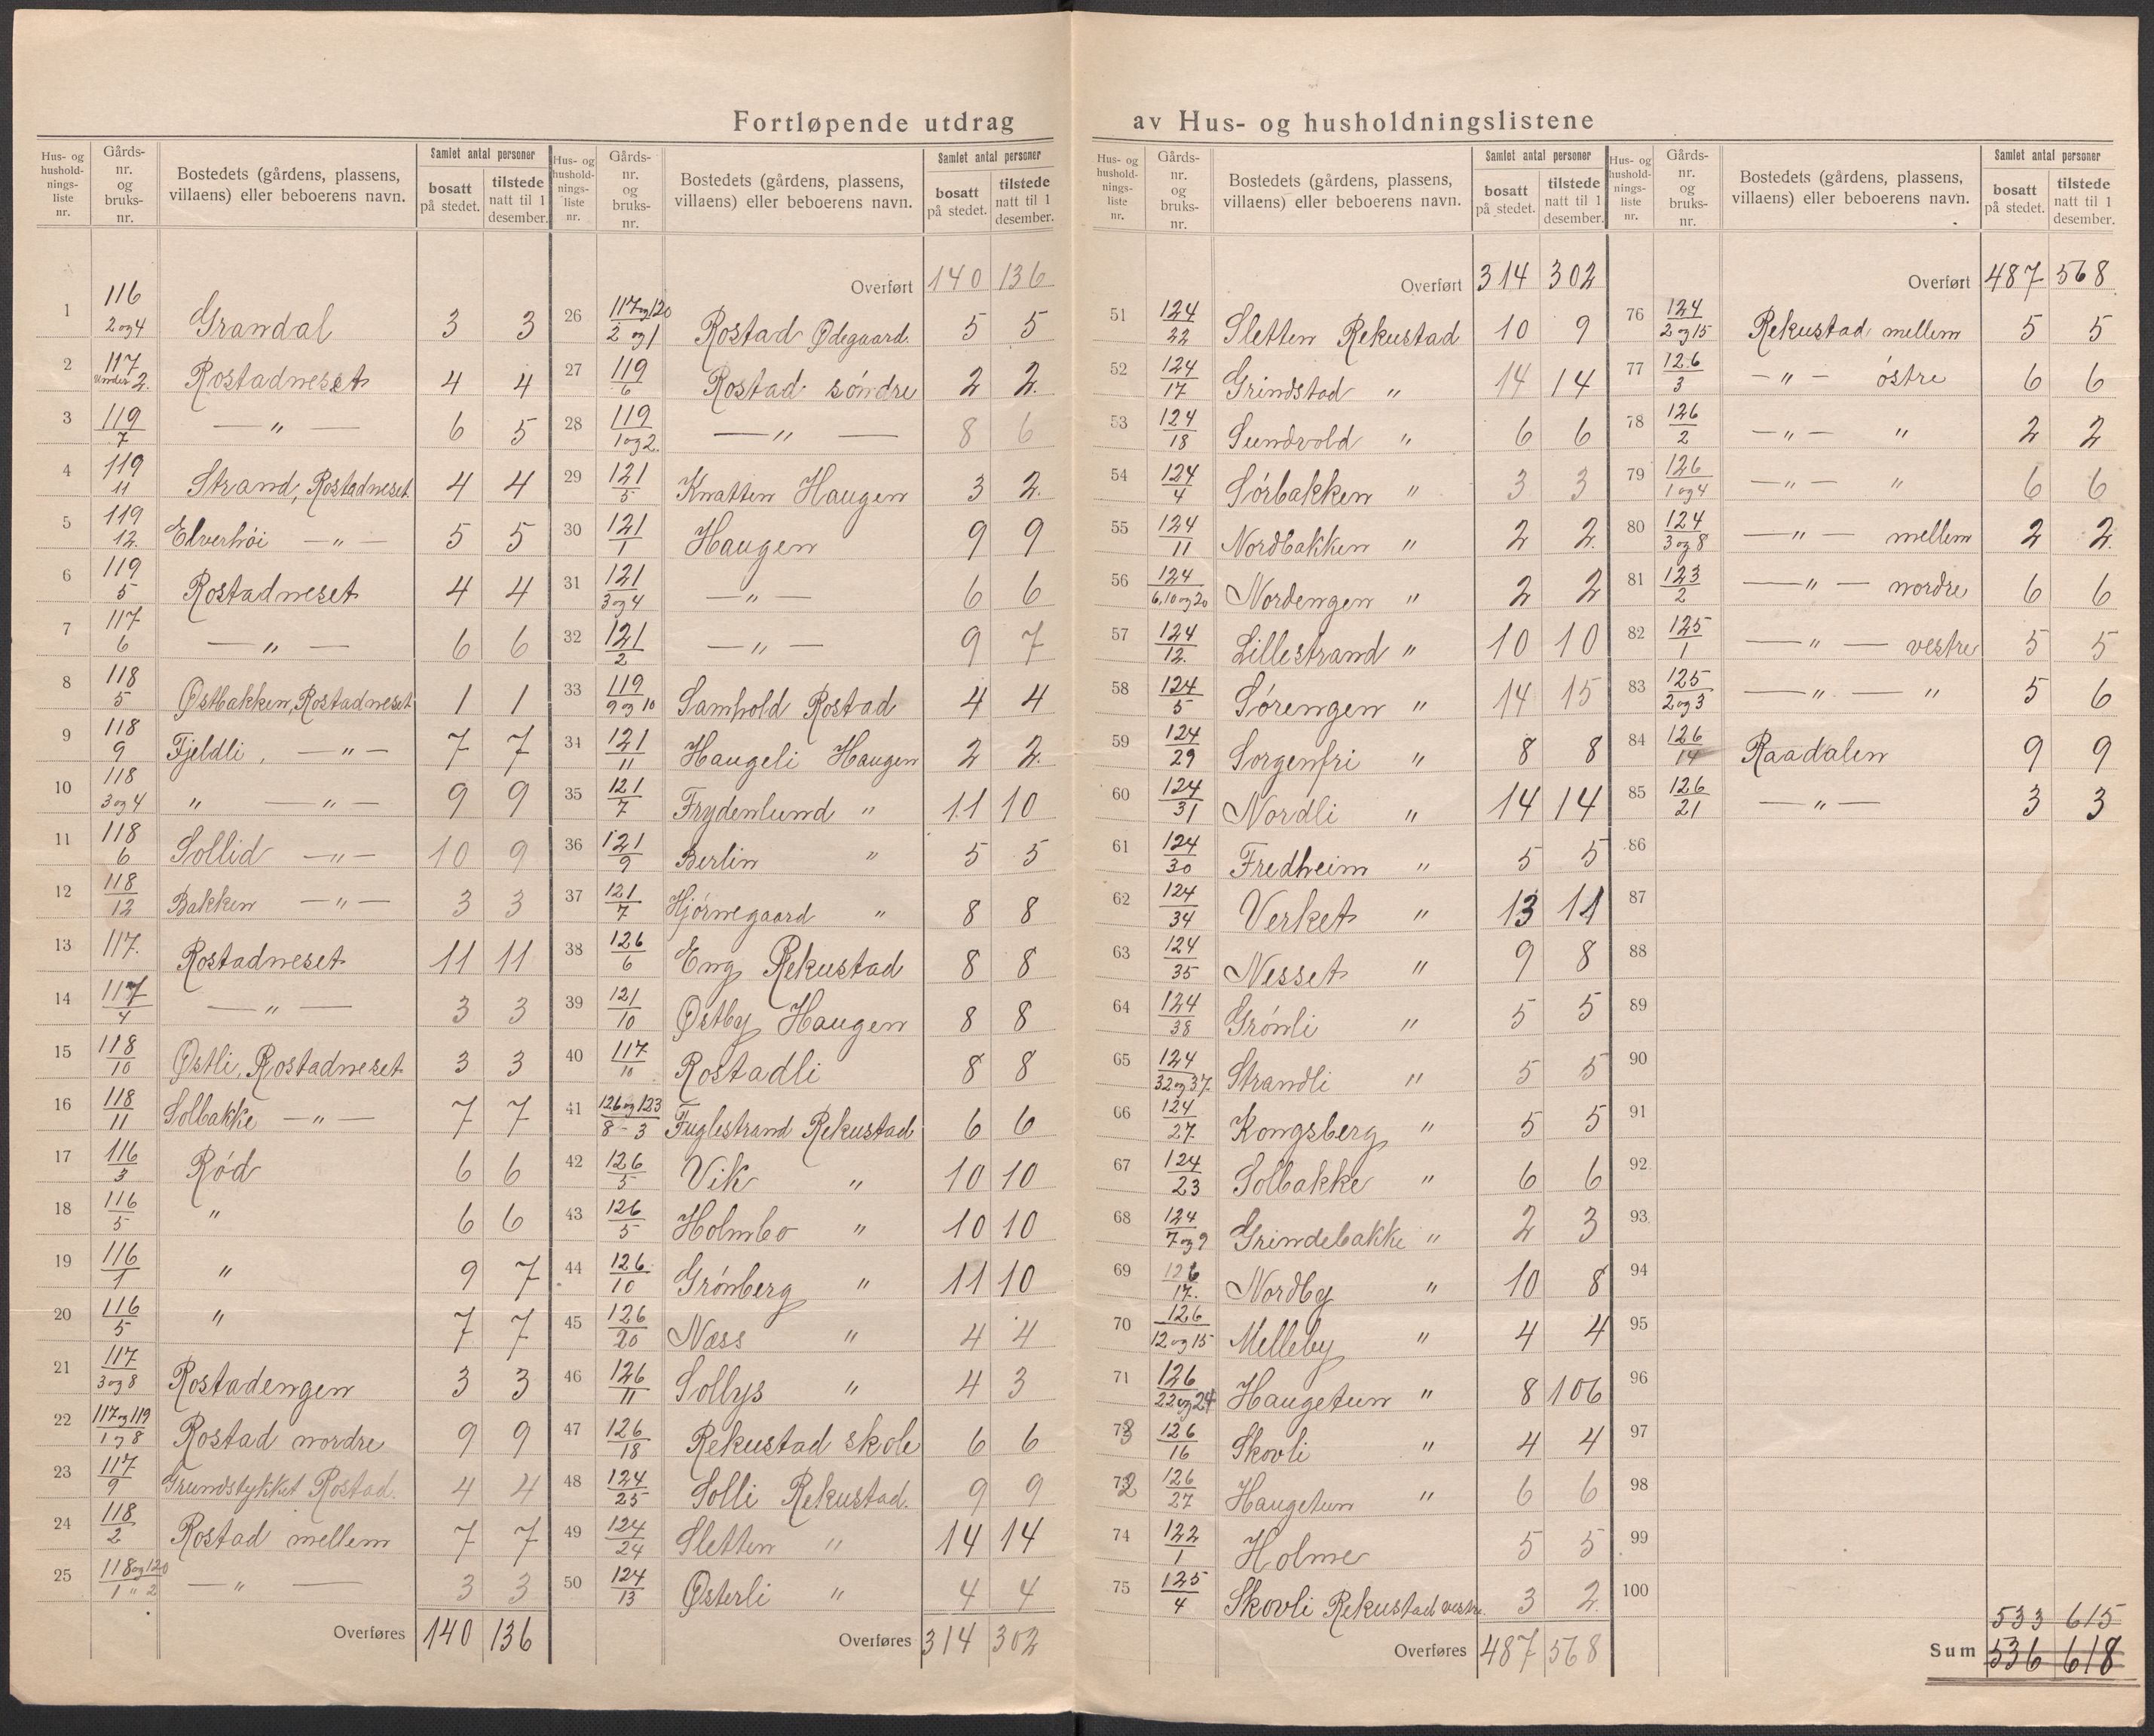 Fortløpende utdrag av Hus- og husholdningslistene
Hus- og hushold-nings-liste nr. | Gårds-nr. og bruks-nr. | Bostedets (gårdens, plassens, villaens) eller beboerens navn. | Samlet antal personer | bosatt på stedet. | tilstede natt til 1 desember.
1 116 2 og 4 Grandal 3 3
2 117 under 2. Rostadneset 4 4
3 119/7 — " — 6 5
4 119 11 Strand, Rostadneset 4 4
5 119 12. Elverhöi — " — 5 5
6 119 5 Rostadneset 4 4
7 117 6 — " — 6 6
8 118 5 Østbakken, Rostadneset 1 1
9 118 9 Fjeldli, — " — 7 7
10 118 3 og 4 " — " — 9 9
11 118 6 Sollid — " — 10 9
12 118/12 Bakken — " — 3 3
13 117. Rostadneset 11 11
14 117/4 — " — 3 3
15 118/10 Østli, Rostadneset 3 3
16 118/11 Solbakke — " — 7 7
17 116/3 Röd 6 6
18 116/5 " 6 6
19 116/1 " 9 7
20 116/5 " 7 7
21 117/3 og 8 Rostadengen 3 3
22 117 og 119/1 og 8 Rostad nordre 9 9
23 117/9 Grundstykket Rostad. 4 4
24 118/2 Rostad mellem 7 7
25 118 og 120/1 " 2 — " — 3 3
Overføres 140 136
Hus- og hushold-nings-liste nr. | Gårds-nr. og bruks-nr. | Bostedets (gårdens, plassens, villaens) eller beboerens navn. | Samlet antal personer | bosatt på stedet. | tilstede natt til 1 desember.
Overført 140 136
26 117 og 120/2 og 1 Rostad Ødegaard. 5 5
27 119/6 Rostad söndre 2 2.
28 119/1 og 2. — " — 8 6
29 121/5 Knatten Haugen 3 2.
30 121/1 Haugen 9 9
31 121/3 og 4 — " — 6 6
32 121/2 — " — 9 7
33 119/9 og 10 Samhold Rostad 4 4
34 121/11 Haugeli Haugen 2 2.
35 121/7 Frydenlund " 11 10
36 121/9 Berlin " 5 5
37 121/7 Hjörnegaard " 8 8
38 126/6 Eng Rekustad 8 8
39 121/10 Østby Haugen 8 8
40 117/10 Rostadli 8 8
41 126 og 123/8 - 3 Fuglestrand Rekustad 6 6
42 126/5 Vik " 10 10
43 126/5 Holmbo " 10 10
44 126/10 Grönberg " 11 10
45 126/20 Næss " 4 4
46 126/11 Sollys " 4 3
47 126/18 Rekustad skole 6 6
48 124/25 Solli Rekustad. 9 9
49 124/24 Sletten " 14 14
50 124/13 Østerli " 4 4
Overføres 314 302
Hus- og hushold-nings-liste nr. | Gårds-nr. og bruks-nr. | Bostedets (gårdens, plassens, villaens) eller beboerens navn. | Samlet antal personer | bosatt på stedet. | tilstede natt til 1 desember.
Overført 314 302
51 124/22 Sletten Rekustad 10 9
52 124/17 Grindstad " 14 14
53 124/18 Sundvold " 6 6
54 124/4 Sörbakken " 3 3
55 124/11 Nordbakken " 2 2.
56 124/6, 10 og 20 Nordengen " 2 2
57 124/12. Lillestrand " 10 10
58 124/5 Sörengen " 14 15
59 124/29 Sorgenfri " 8 8
60 124/31 Nordli " 14 14
61 124/30 Fredheim " 5 5
62 124/34 Verket " 13 11
63 124/35 Nesset " 9 8
64 124/38 Grönli " 5 5
65 124/32 og 37. Strandli " 5 5
66 124/27. Kongsberg " 5 5
67 124/23 Solbakke " 6 6
68 124/7 og 9 Grindebakke " 2 3
69 126/17. Nordby " 10 8
70 126/12 og 15 Melleby " 4 4
71 126/22 og 24 Haugetun " 8 106
73 126/16 Skovli " 4 4
72 126/27 Haugetun " 6 6
74 122/1 Holme 5 5
75 125/4 Skovli Rekustad vestre 3 2.
Overføres 487 568
Hus- og hushold-nings-liste nr. | Gårds-nr. og bruks-nr. | Bostedets (gårdens, plassens, villaens) eller beboerens navn. | Samlet antal personer | bosatt på stedet. | tilstede natt til 1 desember.
Overført 487 568
76 124/2 og 15 Rekustad mellem 5 5
77 126/3 — " — östre 6 6
78 126/2 — " — " 2 2
79 126/1 og 4 — " — " 6 6
80 124/3 og 8 — " — mellem 2 2.
81 123/2 — " — nordre 6 6
82 125/1 — " — vestre 5 5
83 125/2 og 3 — " — " 5 6
84 126/14 Raadalen 9 9
85 126/21 — " — 3 3
86
87
88
89
90
91
92
93
94
95
96
97
98
99
100
533 615
Sum 536 618